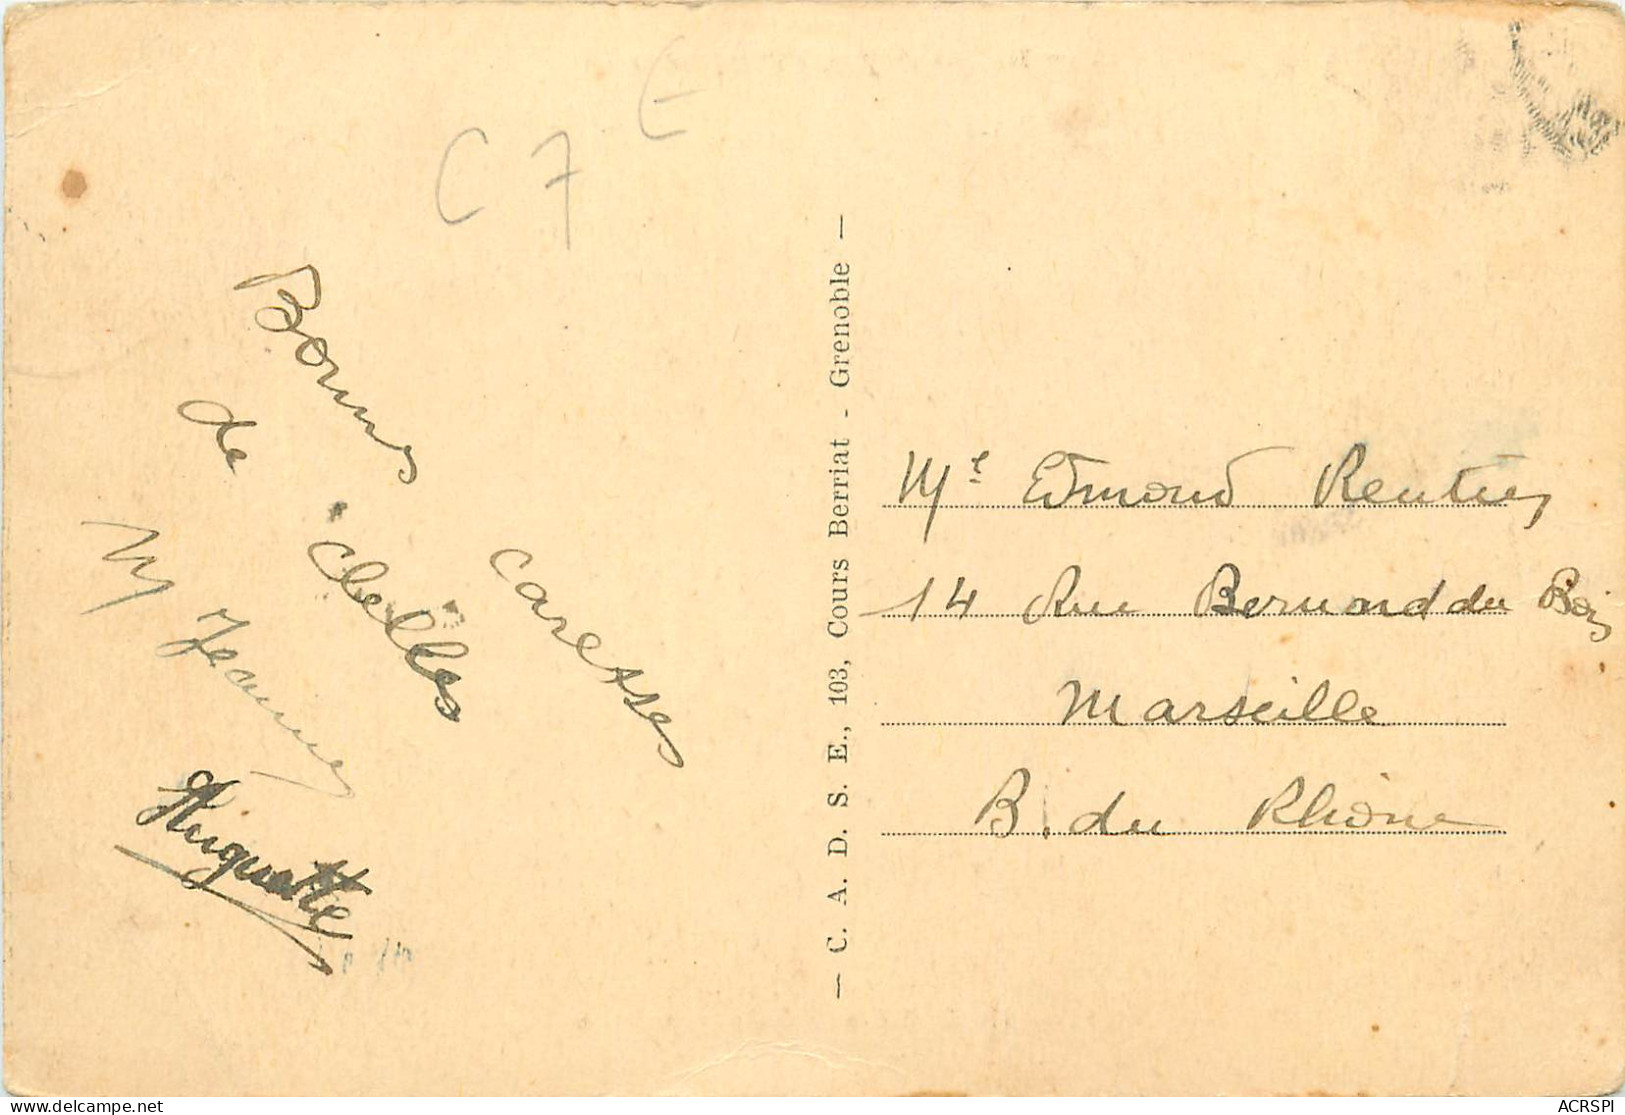 C 7 E
Bonnes caresses
de Clelles
M Jeanne
Huguette
— C. A. D. S. E., 103, Cours Berriat - Grenoble —
Mr Edmond
14 Rue Bernard du Bois
Marseille
B. du Rhône
ACRSPI
delcampe.net